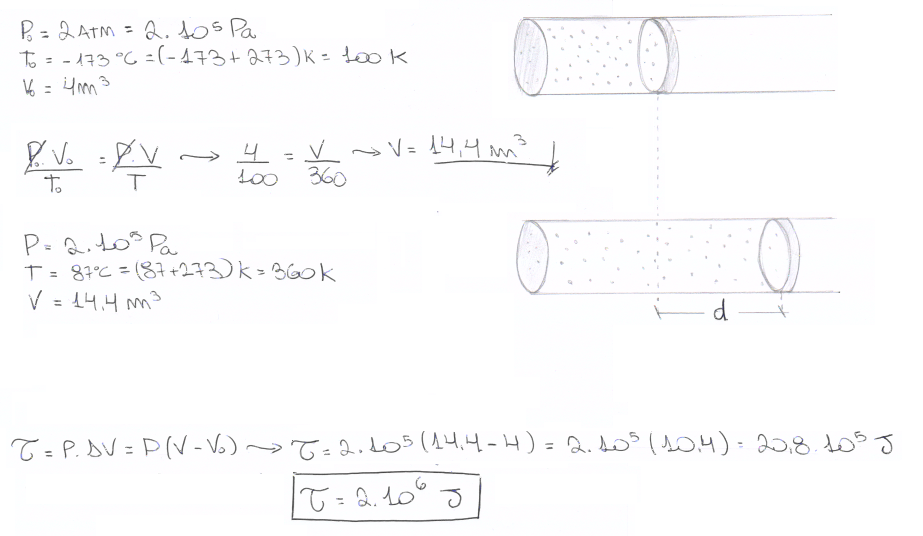 P₀ = 2 ATM = 2.10⁵ Pa
T₀ = -173 °C = (-173 + 273) K = 100 K
V₀ = 4m³
P₀.V₀/T₀ = P.V/T → 4/100 = V/360 → V = 14,4 m³
P = 2.10⁵ Pa
T = 87°C = (87+273) K = 360 K
V = 14,4 m³
d
τ = P.ΔV = P(V-V₀) → τ = 2.10⁵ (14,4 - 4) = 2.10⁵ (10,4) = 20,8.10⁵ J
τ = 2.10⁶ J